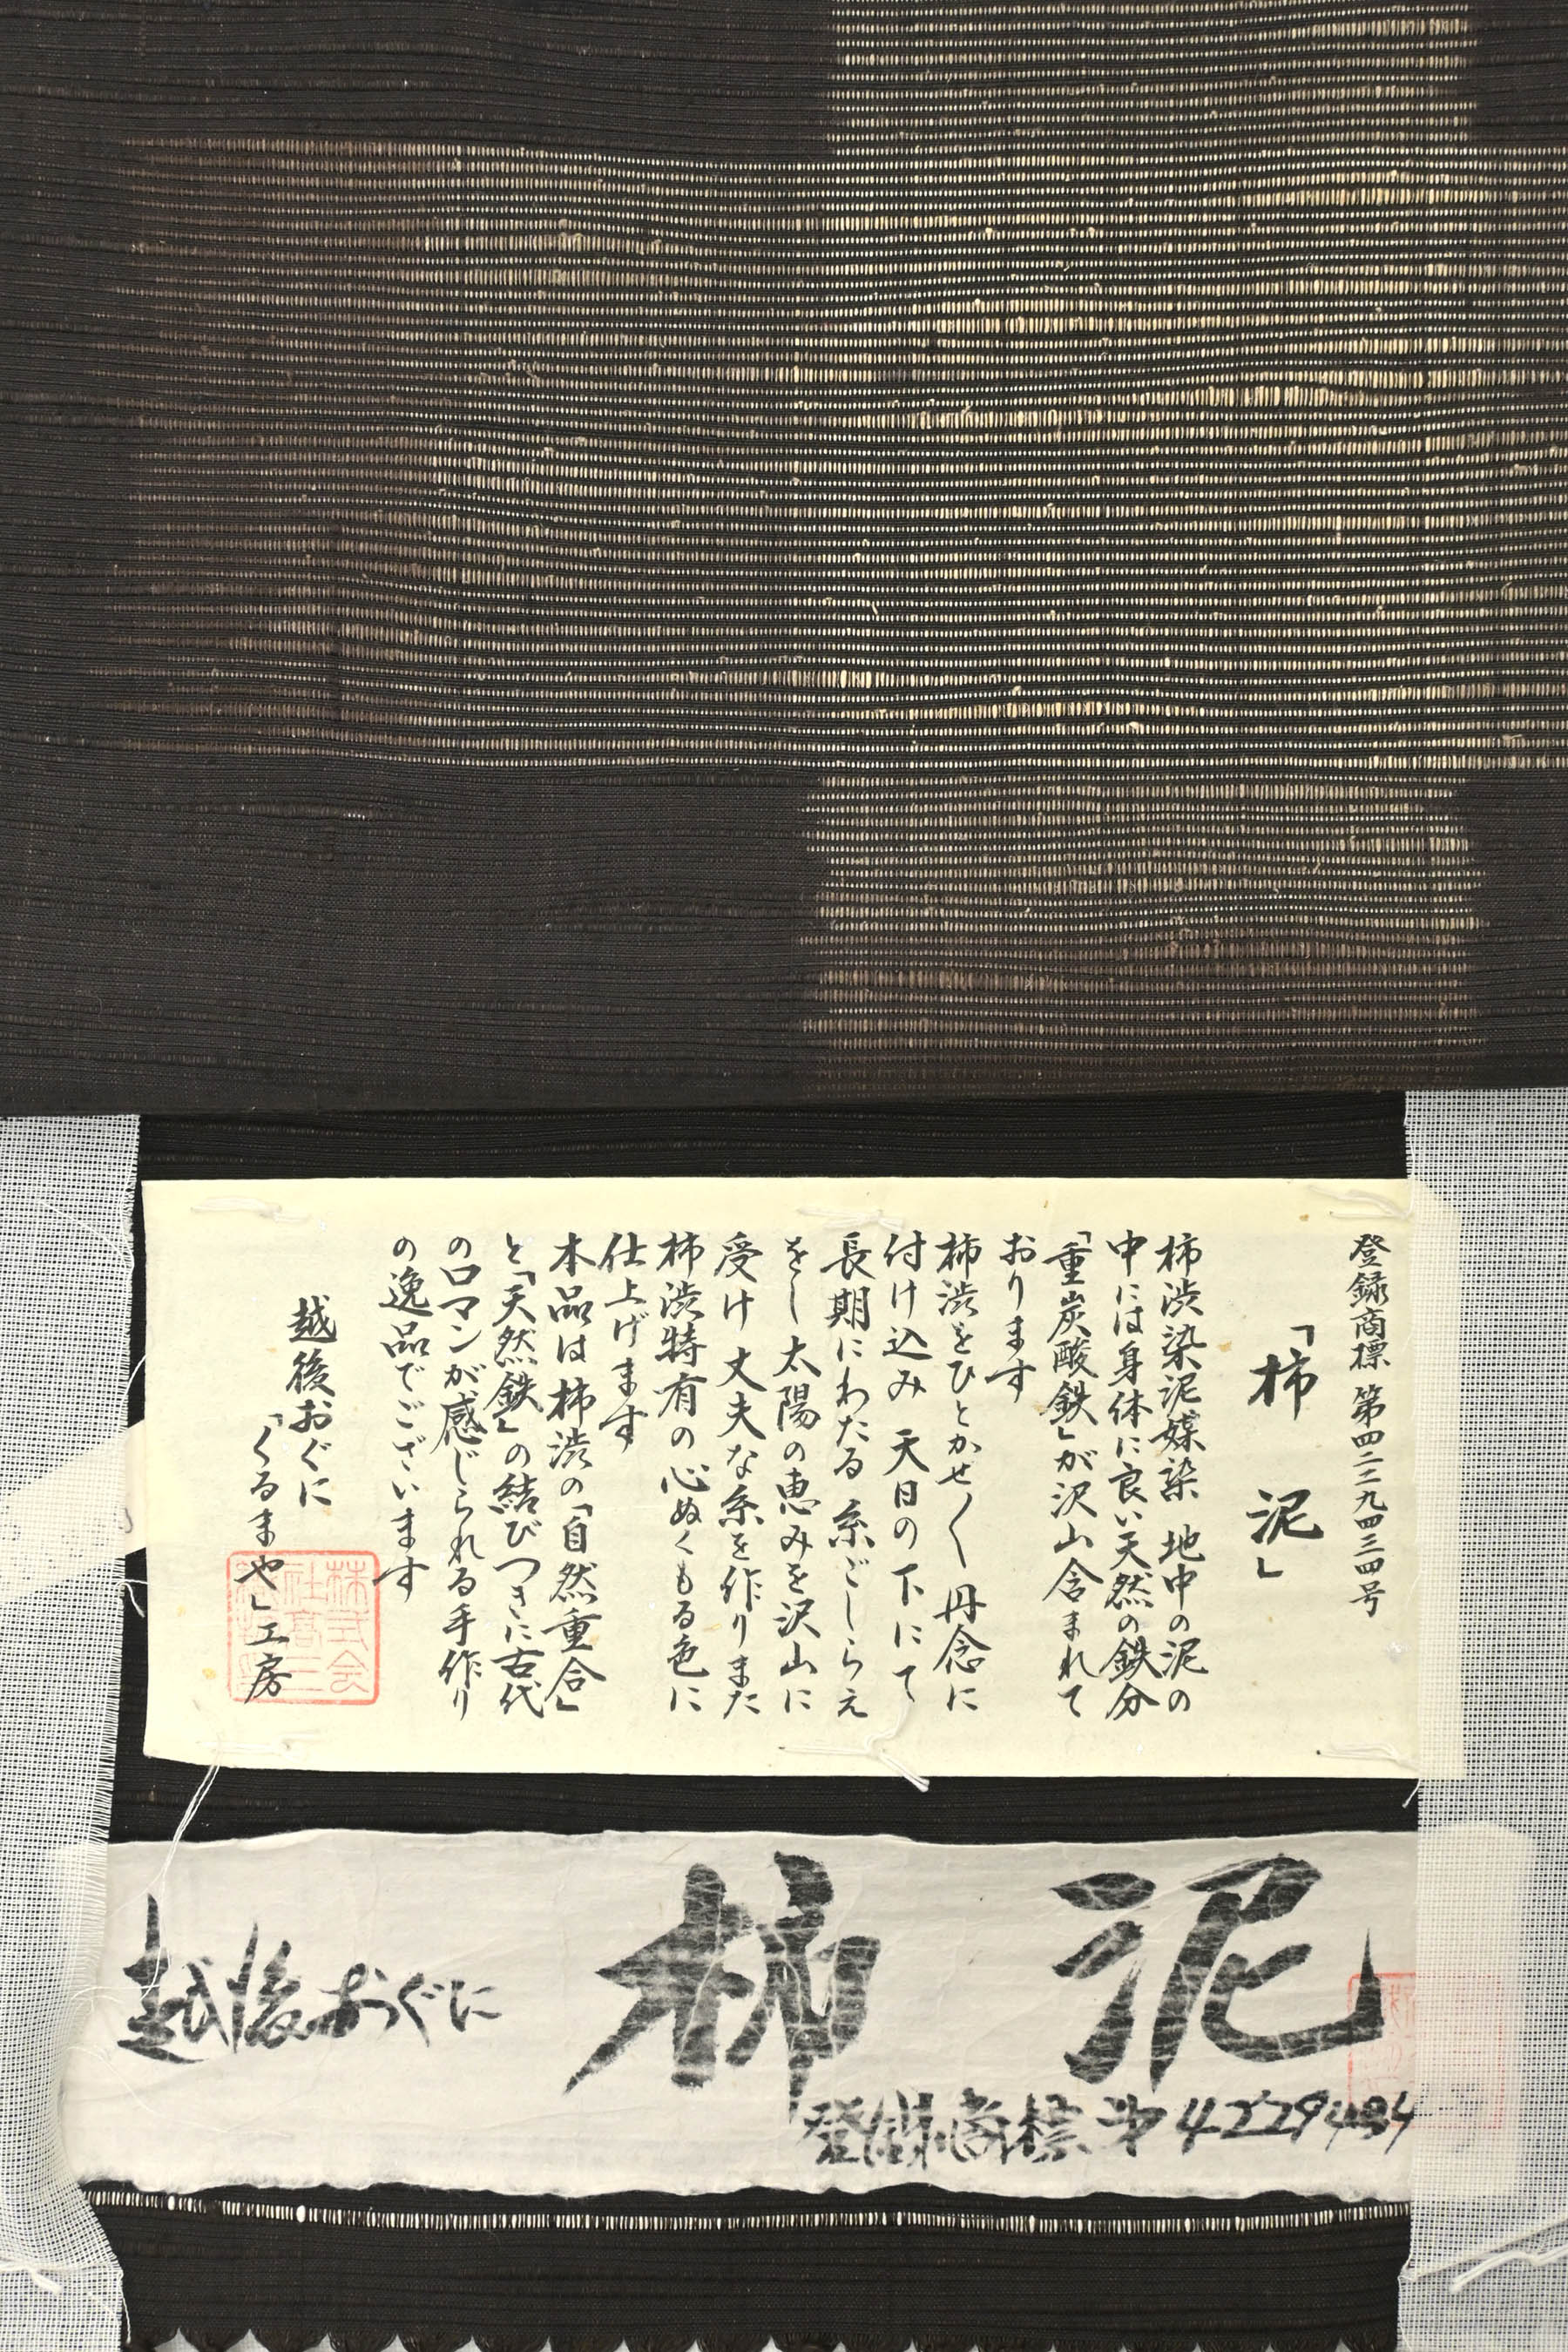 登録商標 第四二二九四三四号
「柿 泥」
柿渋染泥媒染 地中の泥の
中には身体に良い天然の鉄分
「重炭酸鉄」が沢山含まれて
おります
柿渋をひとかせ〳〵丹念に
付け込み 天日の下にて
長期にわたる糸ごしらえ
をし 太陽の恵みを沢山に
受け 丈夫な糸を作りまた
柿渋特有の心ぬくもる色に
仕上げます
本品は柿渋の「自然重合」
と「天然鉄」の結びつきに古代
のロマンが感じられる手作り
の逸品でございます
越後おぐに
「くるまや」工房
株式会
社髙三
柿 泥
越後おぐに
登録商標第4229434